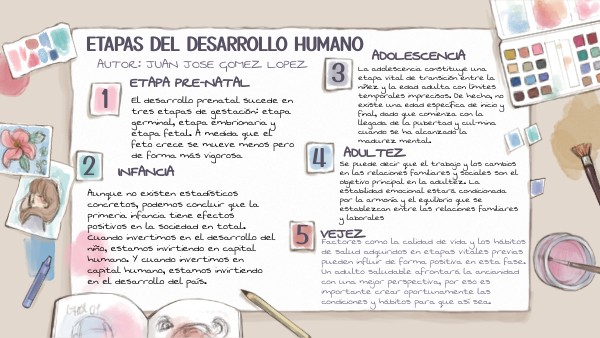 ETAPAS DEL DESARROLLO HUMANO
AUTOR: JUAN JOSE GOMEZ LOPEZ
1
ETAPA PRE-NATAL
El desarrollo prenatal sucede en
tres etapas de gestación: etapa
germinal, etapa embrionaria y
etapa fetal. A medida que el
feto crece se mueve menos pero
de forma más vigorosa
2
INFANCIA
Aunque no existen estadísticos
concretos, podemos concluir que la
primeria infancia tiene efectos
positivos en la sociedad en total.
Cuando invertimos en el desarrollo del
niño, estamos invirtiendo en capital
humano. Y cuando invertimos en
capital humano, estamos invirtiendo
en el desarrollo del país.
3
ADOLESCENCIA
La adolescencia constituye una
etapa vital de transición entre la
niñez y la edad adulta con límites
temporales imprecisos. De hecho, no
existe una edad específica de inicio y
final, dado que comienza con la
llegada de la pubertad y culmina
cuando se ha alcanzado la
madurez mental.
4
ADULTEZ
Se puede decir que el trabajo y los cambios
en las relaciones familiares y sociales son el
objetivo principal en la adultez. La
estabilidad emocional estará condicionada
por la armonía y el equilibrio que se
establezcan entre las relaciones familiares
y laborales
5
VEJEZ
Factores como la calidad de vida y los hábitos
de salud adquiridos en etapas vitales previas
pueden influir de forma positiva en esta fase.
Un adulto saludable afrontará la ancianidad
con una mejor perspectiva, por eso es
importante crear oportunamente las
condiciones y hábitos para que así sea.